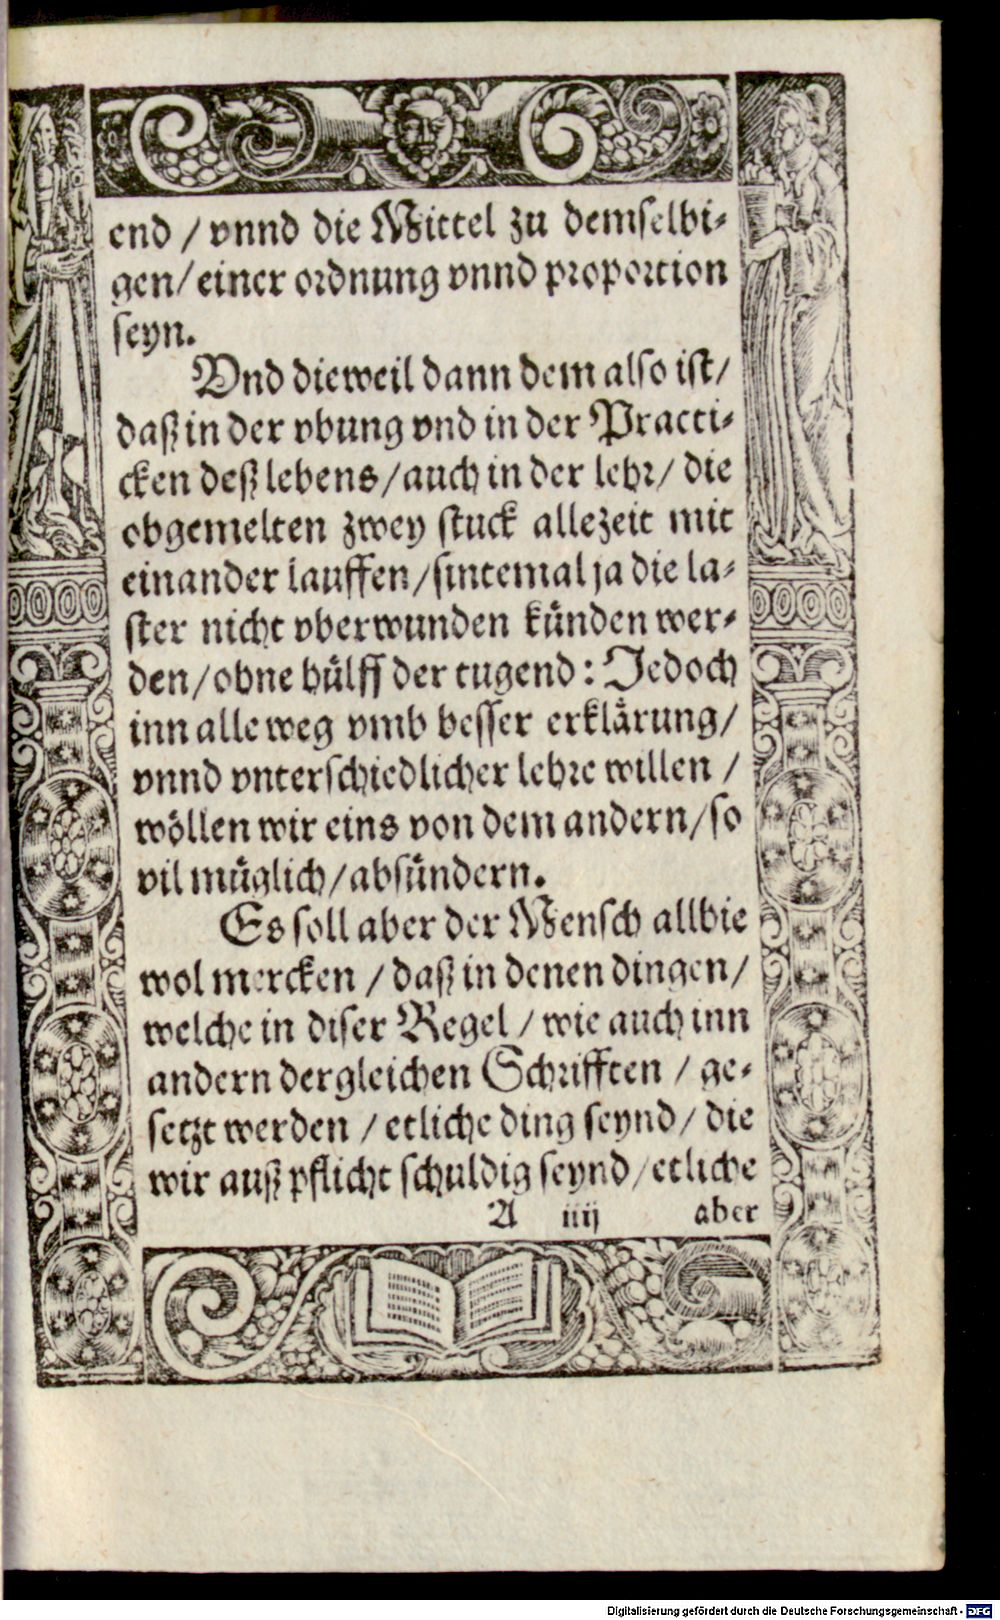 end / vnnd die Mittel zu demselbi⸗
gen / einer ordnung vnnd proportion
seyn.
Vnd dieweil dann dem also ist /
daß in der vbung vnd in der Practi⸗
cken deß lebens / auch in der lehr / die
obgemelten zwey stuck allezeit mit
einander lauffen / sintemal ja die la⸗
ster nicht vberwunden künden wer⸗
den / ohne hülff der tugend : Jedoch
inn alle weg vmb besser erklärung /
vnnd vnterschiedlicher lehre willen /
wöllen wir eins von dem andern / so
vil müglich / absündern.
Es soll aber der Mensch allhie
wol mercken / daß in denen dingen /
welche in diser Regel / wie auch inn
andern dergleichen Schrifften / ge⸗
setzt werden / etliche ding seynd / die
wir auß pflicht schuldig seynd / etliche
A iiij aber
Digitalisierung gefördert durch die Deutsche Forschungsgemeinschaft - DFG